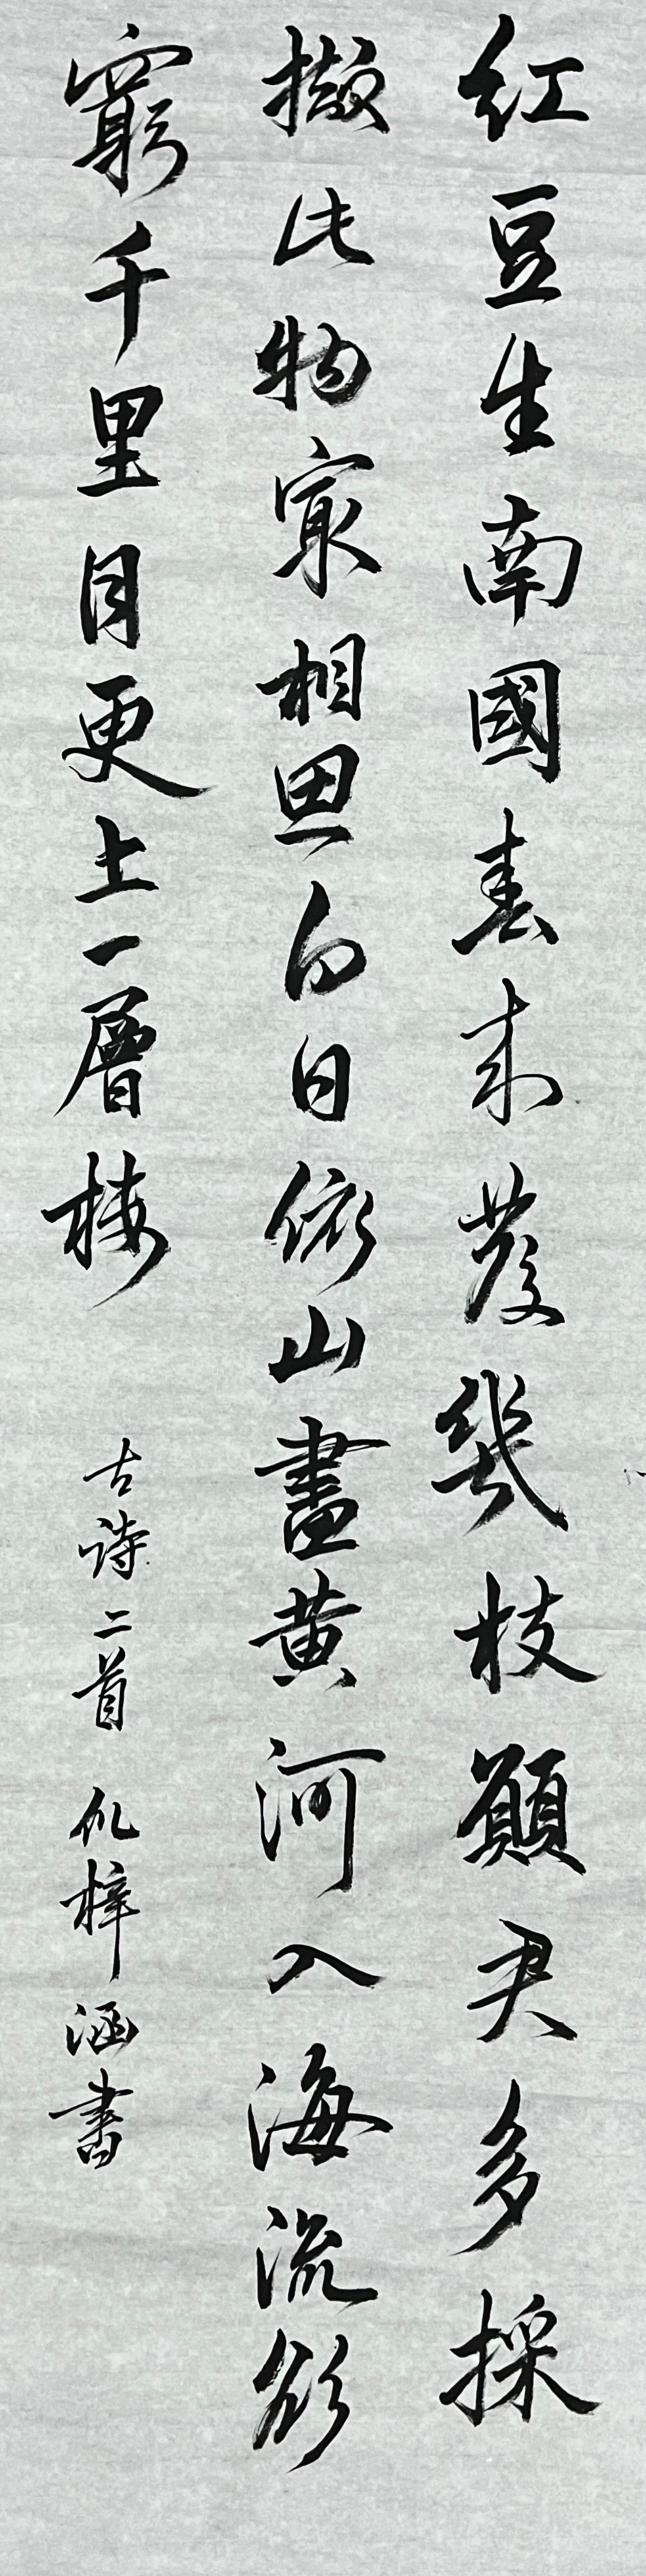 紅豆生南國春來發幾枝願君多採
擷此物寂相思白日依山盡黃河入海流欲
窮千里目更上一層樓
古詩二首 仉梓涵書